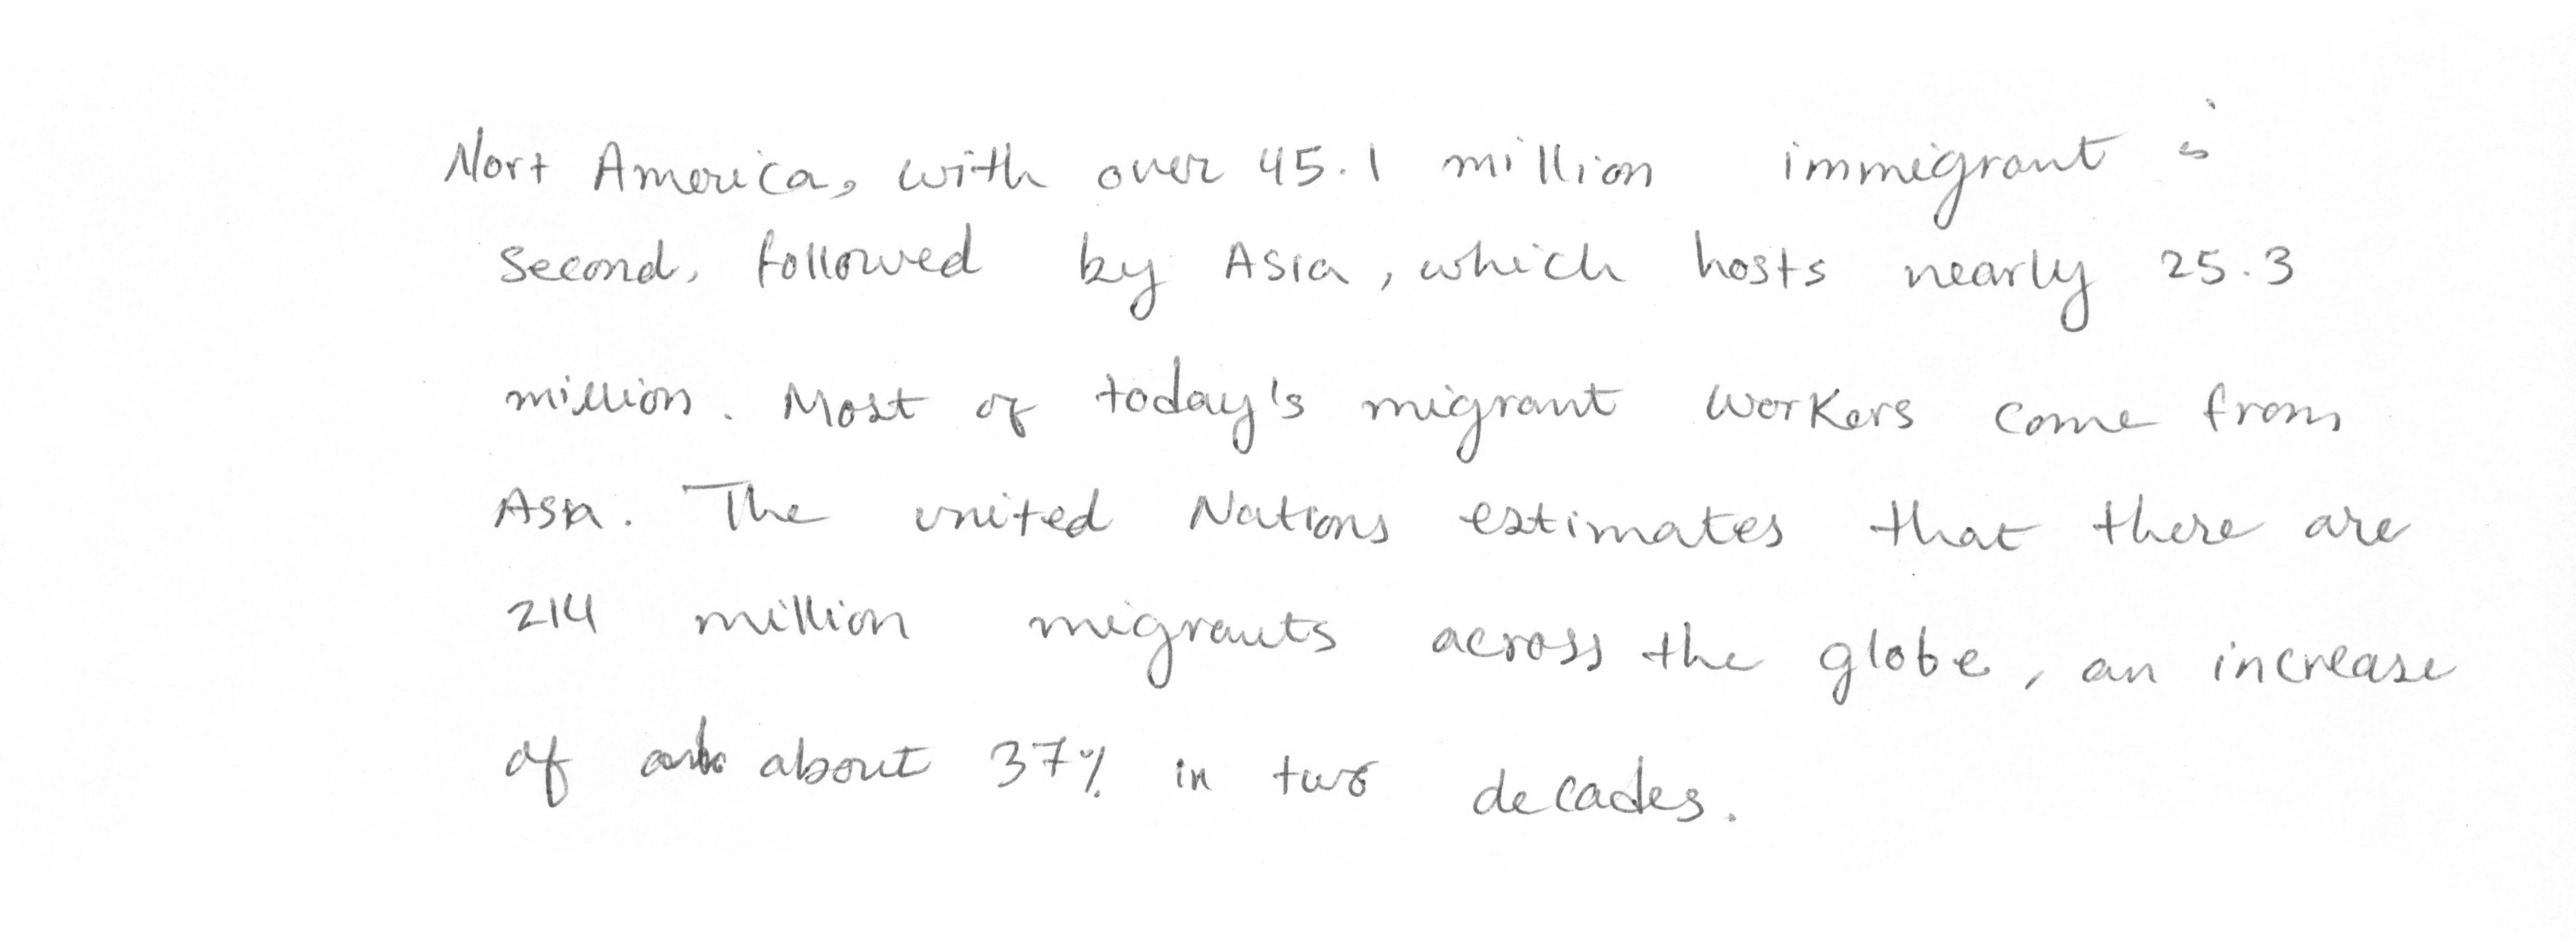 Nort America, with over 45.1 million immigrant is
second, followed by Asia, which hosts nearly 25.3
million. Most of today's migrant workers come from
Asia. The united Nations estimates that there are
214 million migrants across the globe, an increase
of about 37% in two decades.